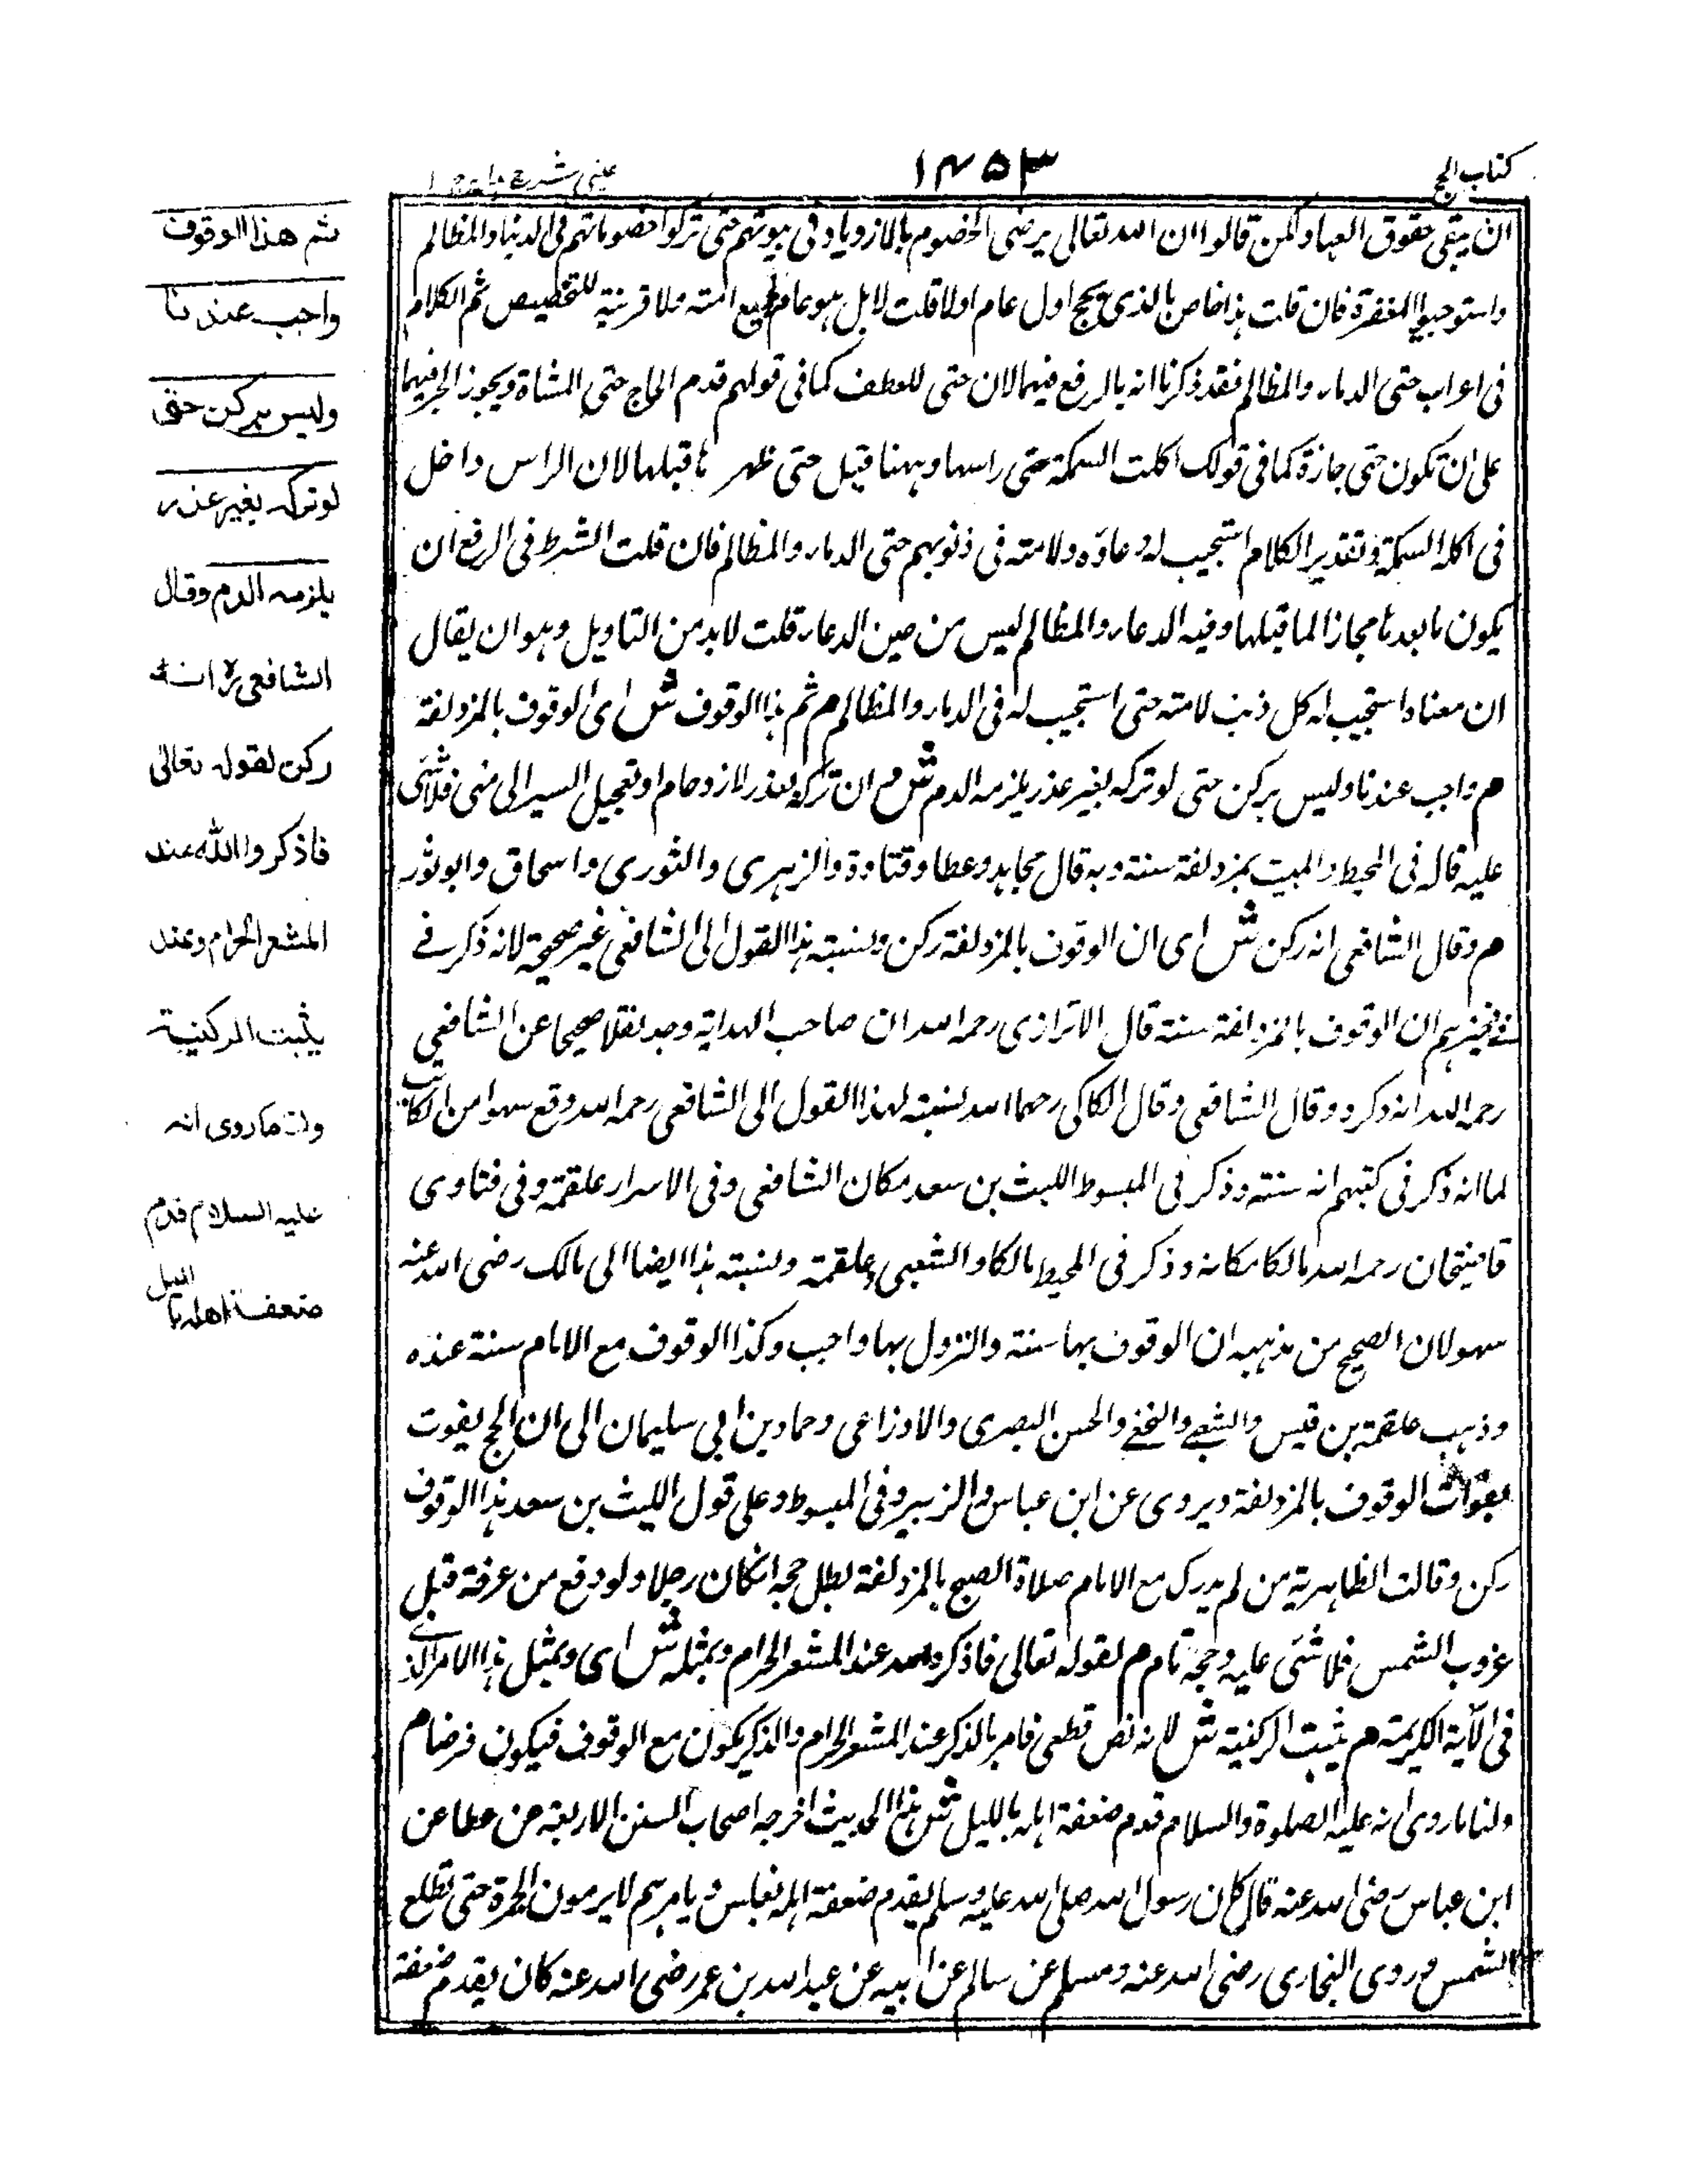 كتاب الحج
١٤٥٣
عيني شرح هداية ج ١
ان يبقى حقوق العباد ولكن قالوا ان الله تعالى يرضى الخصوم بالازدياد فى مثوباتهم حتى تركوا خصوماتهم فى الدماء والمظالم
واستوجبوا المغفرة فان قلت هذا خاص بالذى يحج اول عام اولا قلت لا بل هو عام لجميع امته فلا قرينة للتخصيص ثم الكلام
فى اعراب حتى الدماء والمظالم فقد ذكرنا انه بالرفع فيهما لان حتى للعطف كما فى قولهم قدم الحاج حتى المشاة ويجوز الجر فيهما
على ان تكون حتى جازة كما فى قولك اكلت السمكة حتى راسها وههنا قيل حتى ظهر ما قبلها لان الراس داخل
فى اكله السمكة وتقدير الكلام استجيب له دعاؤه ولامته فى ذنوبهم حتى الدماء والمظالم فان قلت الشرط فى الرفع ان
يكون ما بعدها مجازا لما قبلها وفيه الدعاء والمظالم ليس من عين الدعاء قلت لا بد من التاويل وهو ان يقال
ان معناه استجيب له كل ذنب لامته حتى استجيب له فى الدماء والمظالم م ثم هذا الوقوف ش اى الوقوف بالمزدلفة
م واجب عندنا وليس بركن حتى لو تركه بغير عذر يلزمه الدم ش م ان تركه بعذر لازدحام او تعجيل السير الى منى فلا شئ
عليه قاله فى المحيط والمبيت بمزدلفة سنة وبه قال مجاهد وعطا وقتادة والزهرى والثورى واسحاق وابو ثور
م وقال الشافعى انه ركن ش اى ان الوقوف بالمزدلفة ركن ونسبته هذا القول الى الشافعى غير صحيحة لانه ذكر فے
ان الوقوف بالمزدلفة سنة قال الاترازى رحمه الله ان صاحب الهداية وجد نقلا صحيحا عن الشافعى
رحمه الله انه ذكره وقال الشافعى وقال الكاكى رحمهما الله نسبته لهذا القول الى الشافعى رحمه الله وقع سهوا من الكاتب
لما انه ذكر فى كتبهم انه سنته وذكر فى المبسوط الليث بن سعد مكان الشافعى وفى الاسرار علقمة وفى فتاوى
قاضيخان رحمه الله مالكا مكانه وذكر فى المحيط مالكا والشعبى وعلقمة ونسبته هذا ايضا الى مالك رضى الله عنه
سهو لان الصحيح من مذهبه ان الوقوف بها سنة والنزول بها واجب وكذا الوقوف مع الامام سنة عنده
وذهب علقمة بن قيس والشعبے والنخعے والحسن البصرى والاوزاعى وحماد بن ابى سليمان الى ان الحج يفوت
بفوات الوقوف بالمزدلفة ويروى عن ابن عباس والزبير وفى المبسوط وعلى قول الليث بن سعد هذا الوقوف
ركن وقالت الظاهرية من لم يدرك مع الامام صلاة الصبح بالمزدلفة بطل حجه ان كان رجلا ولو دفع من عرفة قبل
غروب الشمس فلا شئ عليه وحجه تام م لقوله تعالى فاذكروا الله عند المشعر الحرام وبمثله ش اى وبمثل هذا الامر الذے
فى الآية الكريمة م يثبت الركنية ش لانه نص قطعى فامر بالذكر عند المشعر الحرام والذكر يكون مع الوقوف فيكون فرضا م
ولنا ما روى انه عليه الصلوة والسلام قدم ضعفة اهله بالليل ش هذا الحديث اخرجه اصحاب السنن الاربعة عن عطا عن
ابن عباس رضى الله عنه قال كان رسول الله صلى الله عليه وسلم يقدم ضعفة اهله بغلس ويامرهم لا يرمون الجمرة حتى تطلع
الشمس وروى البخارى رضى الله عنه ومسلم عن سالم عن ابيه عن عبد الله بن عمر رضى الله عنه كان يقدم ضعفة
ثم هذا الوقوف
واجب عندنا
وليس بركن حتى
لو تركه بغير عذر
يلزمه الدم وقال
الشافعى رح انه
ركن لقوله تعالى
فاذكروا الله عند
المشعر الحرام وعند
يثبت الركنية
ولنا ما روى انه
عليه السلام قدم
ضعفة اهله بالليل